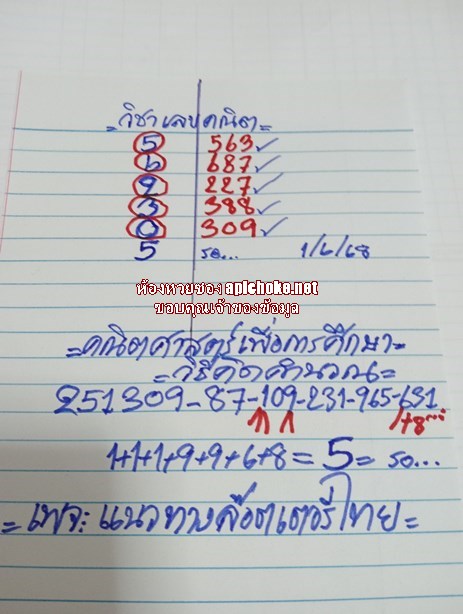 =วิชาเลขคณิต=
5 563✓
6 687✓
2 227✓
3 388✓
0 309✓
5 รอ... 1/6/68
ห้องหวยซอง apichoke.net
ขอบคุณเจ้าของข้อมูล
=คณิตศาสตร์เพื่อการศึกษา=
=วิธีคิดคำนวณ=
251309-87-109-231-965-631
1+8
1+1+1+9+9+6+8=5= รอ...
=เพจ: แนวทางล็อตเตอรี่ไทย=